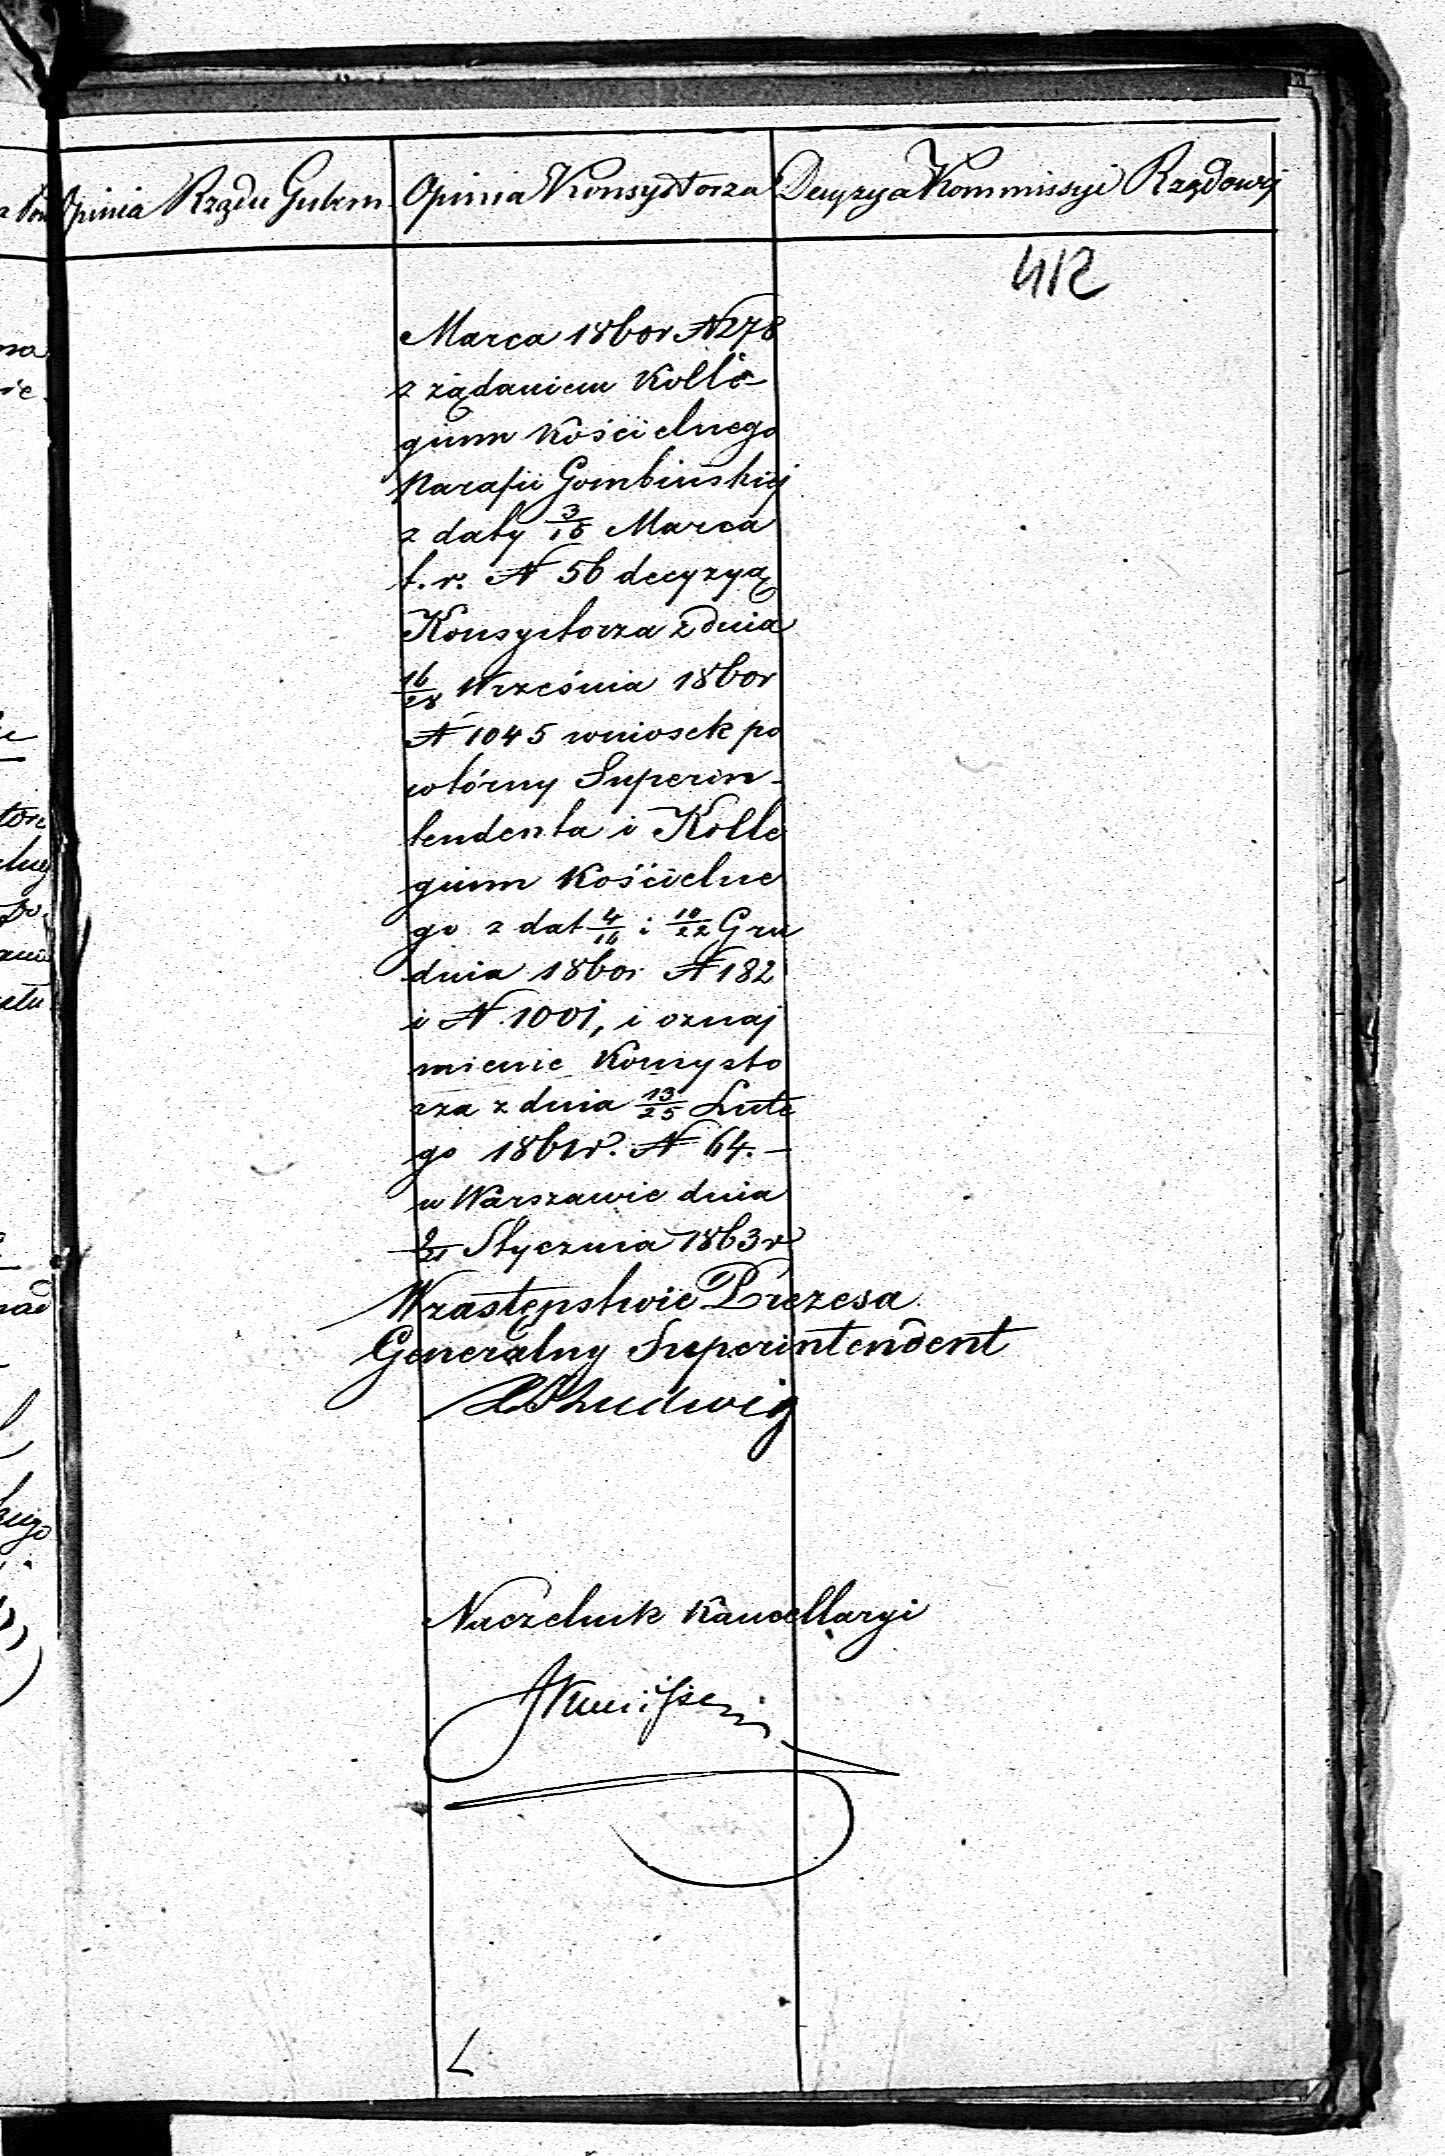 Opinia Rządu Gubern.
Opinia Konsystorza
Decyzya Kommissyi Rządowej
412
Marca 1860r N 278
z żądaniem Kolle-
gium Kościelnego
Parafii Gombińskiej
z daty 3/15 Marca
t. r. N 56 decyzyą
Konsystorza z dnia
16/28 Września 1860r
N 1045 wniosek po
wtórny Superin-
tendenta i Kolle
gium Kościelne
go z dat 4/16 i 10/22 Gru
dnia 1860r N 182
i N. 1001, i oznaj
mienie Konsysto
rza z dnia 13/25 Lute
go 1861r. N 64. –
w Warszawie dnia
9/21 Stycznia 1863r
W zastępstwie Prezesa
Generalny Superintendent
Ludwig
Naczelnik Kancellaryi